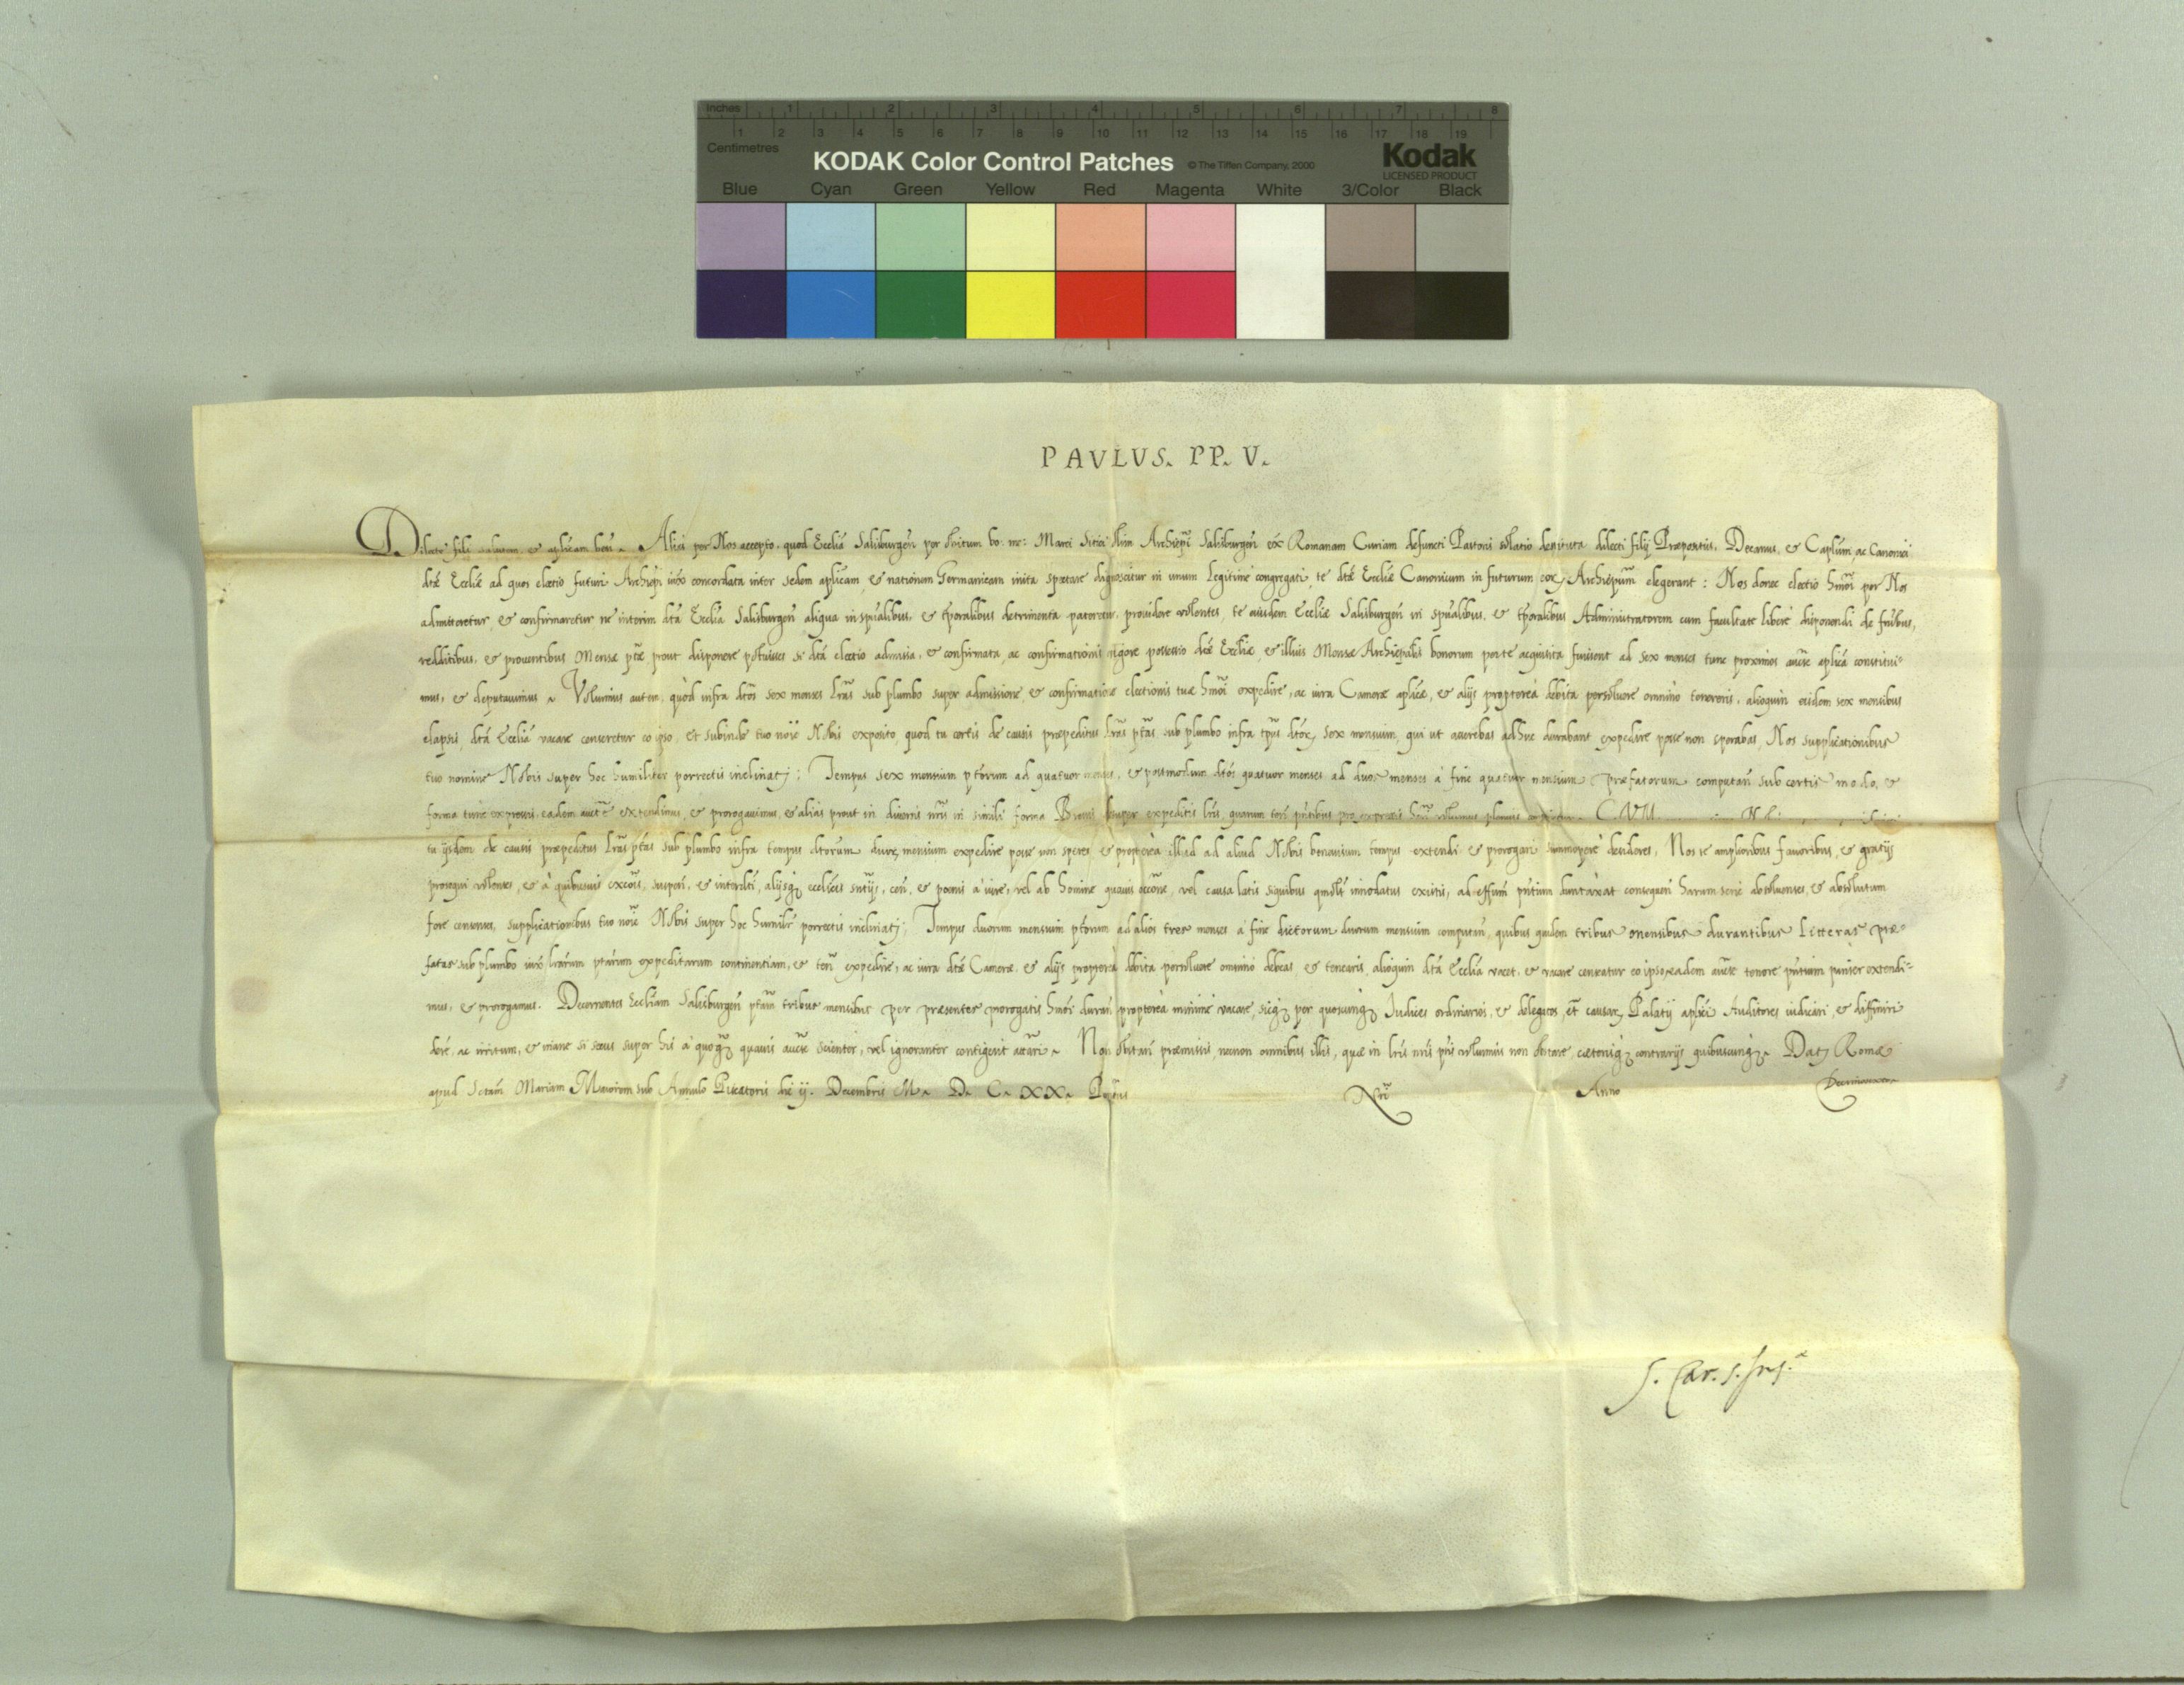 Inches 1 2 3 4 5 6 7 8
1 2 3 4 5 6 7 8 9 10 11 12 13 14 15 16 17 18 19
Centimetres
KODAK Color Control Patches © The Tiffen Company, 2000 Kodak
LICENSED PRODUCT
Blue Cyan Green Yellow Red Magenta White 3/Color Black
PAVLVS. PP. V.
Dilecte fili salutem, et aplicam ben. Alias per Nos accepto, quod Ecclia Salisburgen per obitum bo: me: Marci Sitici olim Archiepi Salisburgen ex Romanam Curiam defuncti Pastoris solatio destituta dilecti filij Praepositus, Decanus, et Caplum, ac Canonici
dtae Eccliae ad quos electio futuri Archiepi iuxta concordata inter sedem aplicam, et nationem Germanicam inita spectare dignoscitur in unum legitime congregati, te dtae Eccliae Canonicum in futurum eoz Archiepum elegerant: Nos donec electio hmoi per Nos
admitteretur, et confirmaretur ne interim dta Ecclia Salisburgen aliqua in spualibus, et tporalibus detrimenta pateretur, prouidere volentes, te eiusdem Eccliae Salisburgen in spualibus, et tporalibus Administratorem cum facultate libere disponendi de frubus,
redditibus, et prouentibus Mensae ptae prout disponere potuisses si dta electio admissa, et confirmata, ac confirmationis vigore possessio dtae Eccliae, et illius Mensae Archiepalis bonorum per te acquisita fuissent ad sex menses tunc proximos aucte aplica constitui-
mus, et deputauimus. Volumus autem, quod infra dtos sex menses lras sub plumbo super admissione, et confirmatione electionis tuae hmoi expedire, ac iura Camerae aplicae, et alijs propterea debita persoluere omnino tenereris, alioquin eisdem sex mensibus
elapsis dta Ecclia vacare censeretur eo ipso, Et subinde tuo noie Nobis exposito quod tu certis de causis praepeditus lras ptas sub plumbo infra tpus dtoz sex mensium, qui ut asserebas adhuc durabant expedire posse non sperabas, Nos supplicationibus
tuo nomine Nobis super hoc humiliter porrectis inclinatj; Tempus sex mensium ptorum ad quatuor menses, et postmodum dtos quatuor menses ad duos menses a fine quatuor mensium praefatorum computan sub certis modo, et
forma tunc expressis eadem aucte extendimus, et prorogauimus, et alias prout in diuersis nris in simili forma Breuis desuper expeditis lris, quarum tenores pntibus pro expressis haberi volumus plenius continetur. CVM
tu ijsdem de causis praepeditus lras ptas sub plumbo infra tempus dtorum duoz mensium expedire posse non speres, et propterea illud ad aliud Nobis beneuisum tempus extendi et prorogari summopere desideres, Nos te amplioribus fauoribus, et gratijs
prosequi volentes, et a quibusuis excois, suspen, et interdti, alijsqz ecclicis sntijs, cen, et poenis a iure, vel ab homine quauis occone, vel causa latis siquibus quolt innodatus existis, ad effum pntium duntaxat consequen harum serie absoluentes, et absolutum
fore censentes, supplicationibus tuo noie Nobis super hoc humilr porrectis inclinatj; Tempus duorum mensium ptorum ad alios tres menses a fine dictorum duorum mensium computan, quibus quidem tribus mensibus durantibus Litteras prae-
fatas sub plumbo iuxta lrarum ptarum expeditarum continentiam, et ten expedire, ac iura dtae Camerae, et alijs propterea debita persoluere omnino debeas, et tenearis, alioquin dta Ecclia vacet, et vacare censeatur eo ipso eadem aucte tenore pntium pariter extendi-
mus, et prorogamus. Decernentes Eccliam Salisburgen ptam tribus mensibus per praesentes prorogatis hmoi duran propterea minime vacare, sicqz per quoscunqz Judices ordinarios, et delegatos, et causarz Palatij aplici Auditores iudicari, et diffiniri
debere, ac irritum, et inane si secus super his a quoqz quauis aucte scienter, vel ignoranter contigerit attari. Non obstan praemissis, necnon omnibus illis, quae in lris nris ptis volumus non obstare, caeterisqz contrarijs quibuscunqz. Datz Romae
apud Sctam Mariam Maiorem sub Annulo Piscatoris die ij. Decembris M. D. C. XX. Pontus Nri Anno Decimosexto
S. Car. S. Sus.ae